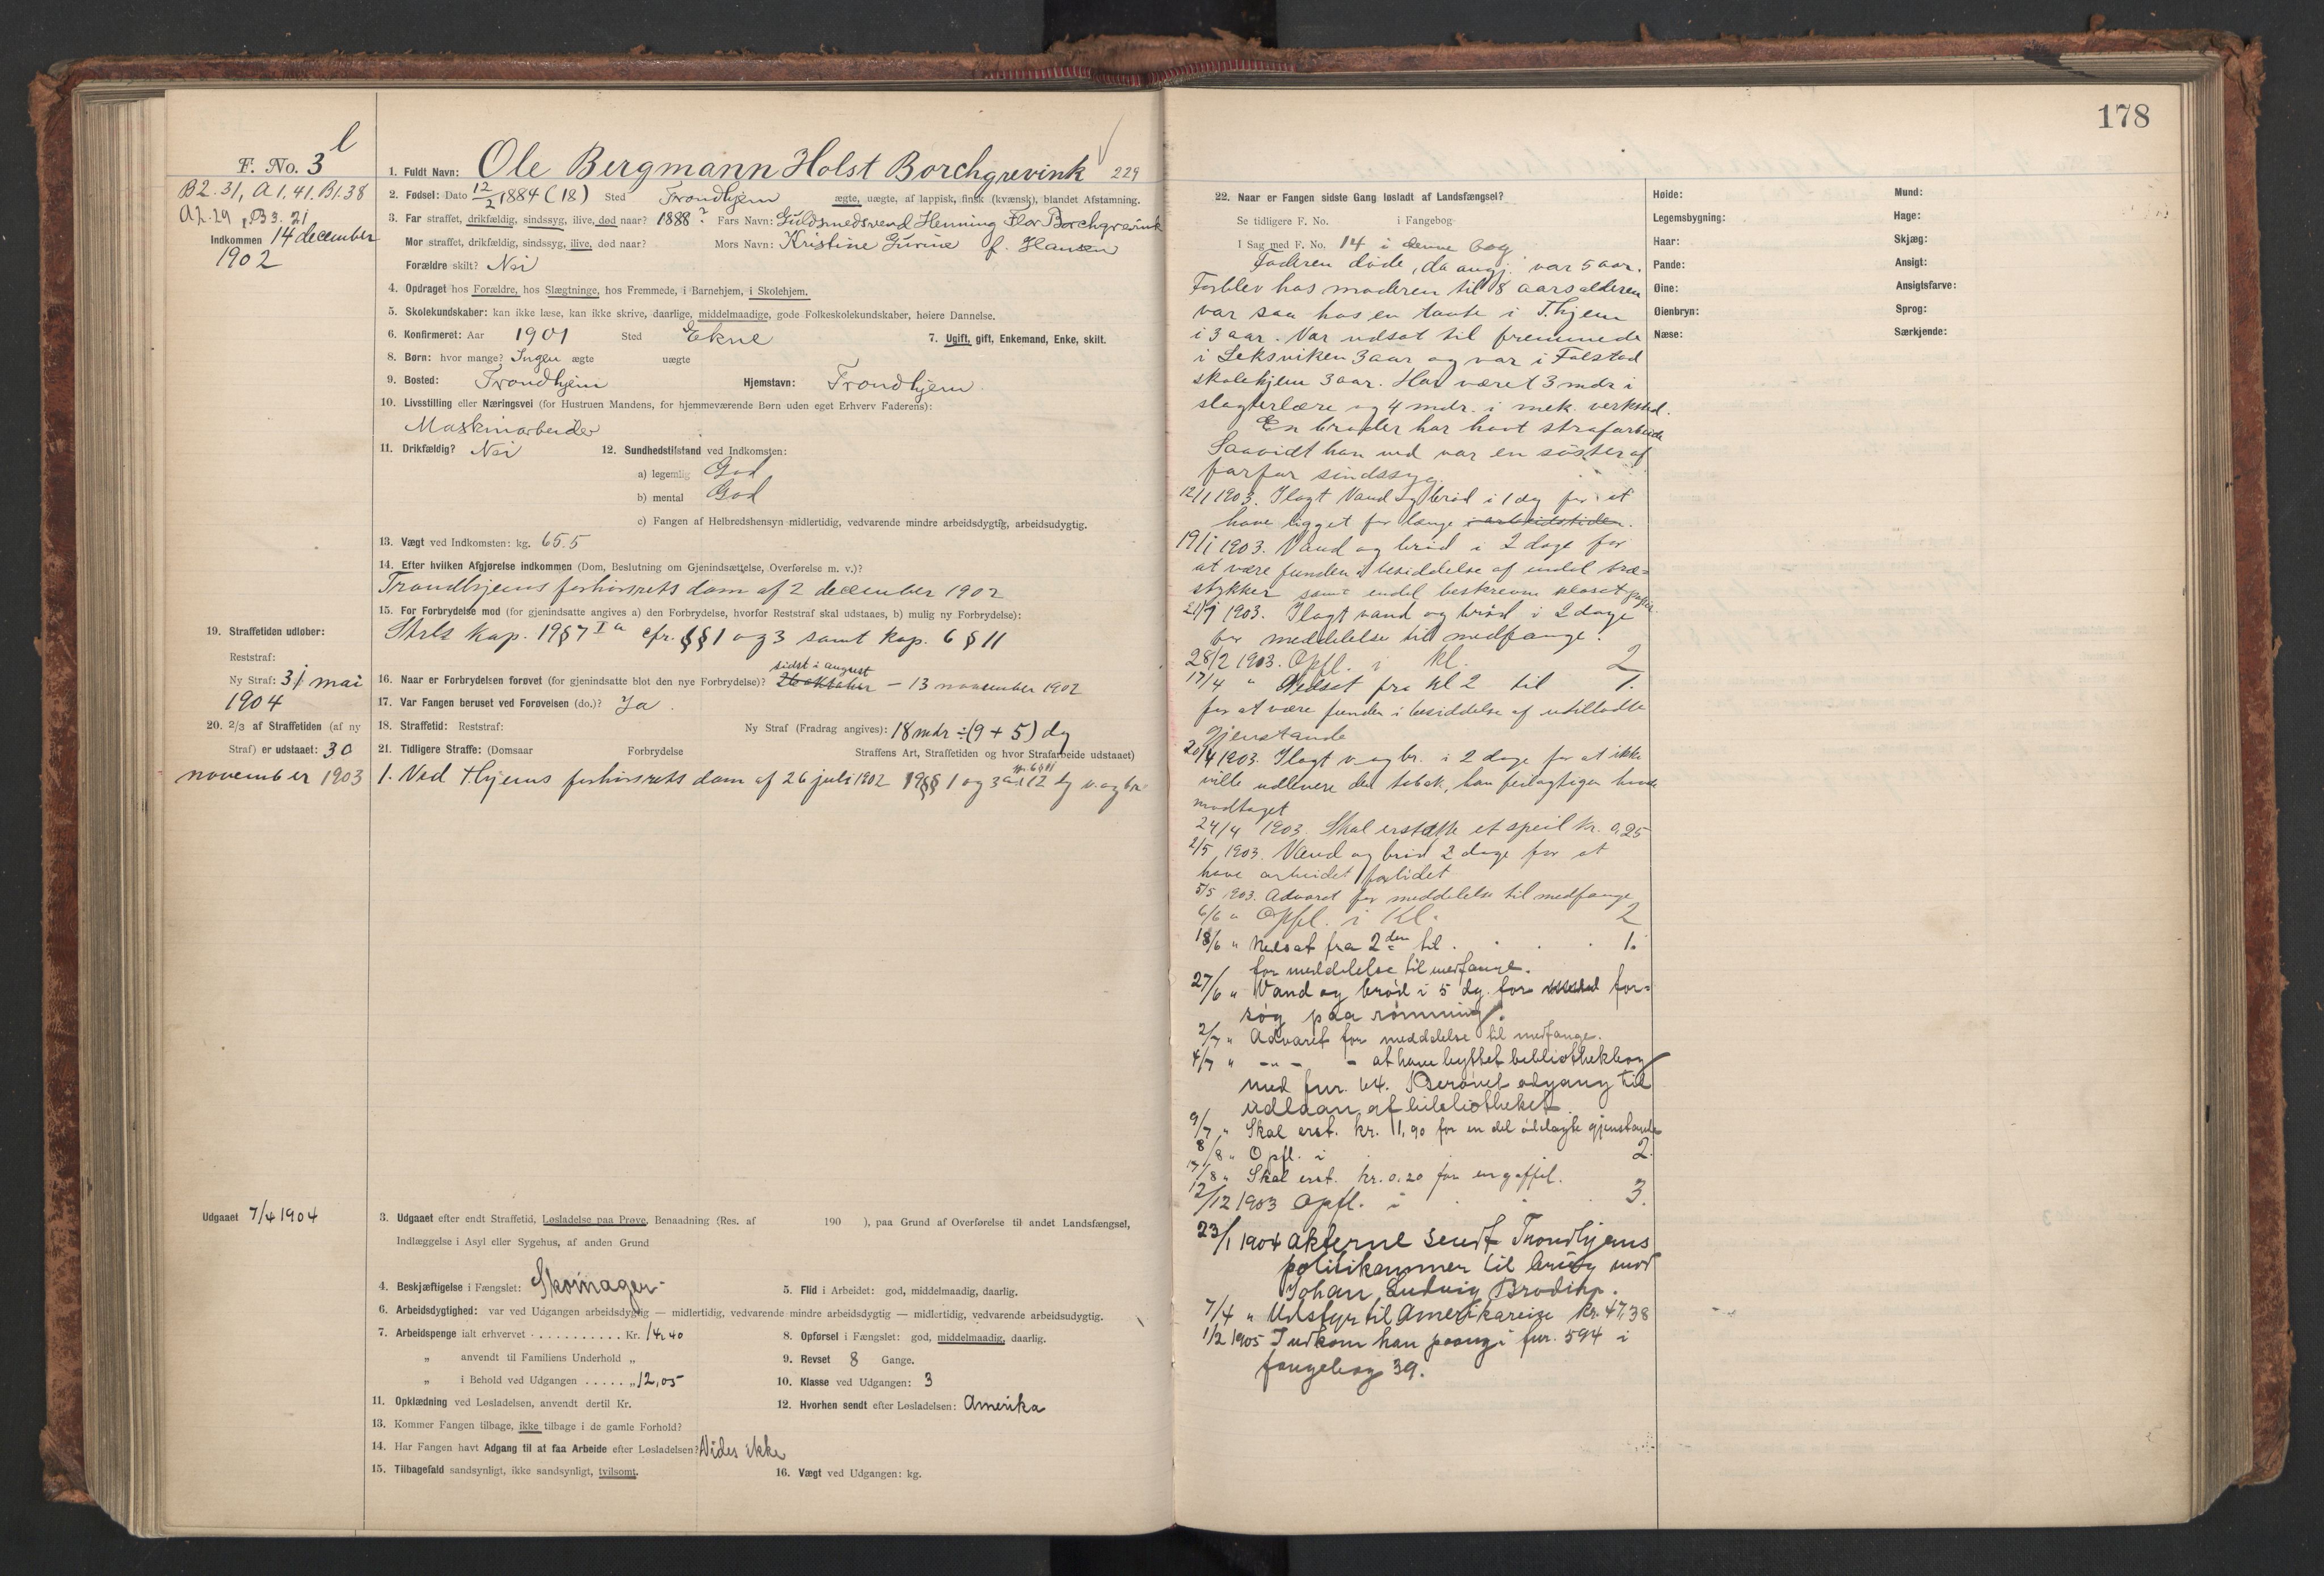 178
l
F. No. 3
B2. 31, A1. 41. B1. 38
A2. 29, B3. 21
Indkommen 14 december
1902
1. Fuldt Navn: Ole Bergmann Holst Borchgrevink 229
2. Fødsel: Dato 12/2 1884 (18) Sted Trondhjem ægte, uægte, af lappisk, finsk (kvænsk), blandet Afstamning.
3. Far straffet, drikfældig, sindssyg, ilive, død naar? 1888? Fars Navn: Guldsmedsvend Henning Flor Borchgrevink
Mor straffet, drikfældig, sindssyg, ilive, død naar? Mors Navn: Kristine Gurine f. Hansen
Forældre skilt? Nei
4. Opdraget hos Forældre, hos Slægtninge, hos Fremmede, i Barnehjem, i Skolehjem.
5. Skolekundskaber: kan ikke læse, kan ikke skrive, daarlige, middelmaadige, gode Folkeskolekundskaber, høiere Dannelse.
6. Konfirmeret: Aar 1901 Sted Ekne 7. Ugift, gift, Enkemand, Enke, skilt.
8. Børn: hvor mange? Ingen ægte uægte
9. Bosted: Trondhjem Hjemstavn: Trondhjem.
10. Livsstilling eller Næringsvei (for Hustruen Mandens, for hjemmeværende Børn uden eget Erhverv Faderens):
Maskinarbeider
11. Drikfældig? Nei 12. Sundhedstilstand ved Indkomsten:
a) legemlig God
b) mental God
c) Fangen af Helbredshensyn midlertidig, vedvarende mindre arbeidsdygtig, arbeidsudygtig.
13. Vægt ved Indkomsten: kg. 65.5
14. Efter hvilken Afgjørelse indkommen (Dom, Beslutning om Gjenindsættelse, Overførelse m. v.)?
Trondhjems forhørsrets dom af 2 december 1902
15. For Forbrydelse mod (for gjenindsatte angives a) den Forbrydelse, hvorfor Reststraf skal udstaaes, b) mulig ny Forbrydelse):
Strls kap. 19 § 7 I a cfr. §§ 1 og 3 samt kap. 6 § 11
sidst i august
16. Naar er Forbrydelsen forøvet (for gjenindsatte blot den nye Forbrydelse)? 26 oktober – 13 november 1902
17. Var Fangen beruset ved Forøvelsen (do.)? Ja.
18. Straffetid: Reststraf: Ny Straf (Fradrag angives): 18 mdr ÷ (9 + 5) dg
21. Tidligere Straffe: (Domsaar Forbrydelse Straffens Art, Straffetiden og hvor Strafarbeide udstaaet)
1. Ved T.hjems forhørsrets dom af 26 juli 1902 19 §§ 1 og 3 a 12 dg v. og br.
19. Straffetiden udløber:
Reststraf:
Ny Straf: 31 mai
1904
20. 2/3 af Straffetiden (af ny
Straf) er udstaaet: 30
november 1903
Udgaaet 7/4 1904
3. Udgaaet efter endt Straffetid, Løsladelse paa Prøve, Benaadning (Res. af 190 ), paa Grund af Overførelse til andet Landsfængsel,
Indlæggelse i Asyl eller Sygehus, af anden Grund
4. Beskjæftigelse i Fængslet: Skomager 5. Flid i Arbeidet: god, middelmaadig, daarlig.
6. Arbeidsdygtighed: var ved Udgangen arbeidsdygtig — midlertidig, vedvarende mindre arbeidsdygtig — midlertidig, vedvarende arbeidsudygtig.
7. Arbeidspenge ialt erhvervet . . . . . . . . . . . Kr. 14,40 8. Opførsel i Fængslet: god, middelmaadig, daarlig.
„ anvendt til Familiens Underhold „ 9. Revset 8 Gange.
„ i Behold ved Udgangen . . . . . „ 12,05 10. Klasse ved Udgangen: 3
11. Opklædning ved Løsladelsen, anvendt dertil Kr. 12. Hvorhen sendt efter Løsladelsen: Amerika
13. Kommer Fangen tilbage, ikke tilbage i de gamle Forhold?
14. Har Fangen havt Adgang til at faa Arbeide efter Løsladelsen? Vides ikke
15. Tilbagefald sandsynligt, ikke sandsynligt, tvilsomt. 16. Vægt ved Udgangen: kg.
22. Naar er Fangen sidste Gang løsladt af Landsfængsel?
Se tidligere F. No. i Fangebog
I Sag med F. No. 14 i denne bog
Faderen døde, da angj. var 5 aar.
Forblev hos moderen til 8 aarsalderen
var saa hos en tante i T.hjem
i 3 aar. Var udsat til fremmede
i Leksviken 3 aar og var i Falstad
skolehjem 3 aar. Har været 3 mdr i
slagterlære og 4 mdr. i mek. verksted.
En broder har havt strafarbeide
Saavidt han ved var en søster af
farfar sindssyg.
12/1 1903. Ilagt Vand og brød i 1 dag for at
have ligget for længe i arbeidstiden.
19/1 1903. Vand og brød i 2 dage for
at være funden i besiddelse af endel
stykker samt endel beskrevne
21/1 1903. Ilagt vand og brød i 2 dage
for meddelelse til medfange.
28/2 1903. Opfl. i kl. 2
17/4 " Nedsat fra kl 2 til 1.
for at være funden i besiddelse af utilladte
gjenstande
20/4 1903. Ilagt v. og br. i 2 dage for at ikke
ville udlevere den tobak, han feilagtigen havde
modtaget
24/4 1903. Skal erstatte et speil kr. 0,25
2/5 1903. Vand og brød 2 dage for at
have arbeidet
5/5 1903. Advaret for meddelelse til medfange
6/6 " Opfl. i Kl. 2
18/6 " Nedsat fra 2den til . . . 1.
for meddelelse til medfange.
27/6 " Vand og brød i 5 dg. for for-
søg paa rømning.
2/7 " Advaret for meddelelse til medfange.
4/7 " -"- - at have byttet bibliothekbog
med fnr. 64. Berøvet adgang til
udlaan af bibliotheket.
9/7 " Skal erst. kr. 11,90 for en del ødelagte gjenstande
8/8 " Opfl. i 2.
17/8 " Skal erst. kr. 0.20 for en gaffel.
12/12 1903 Opfl. i . . 3.
23/1 1904 Akterne sendt Trondhjems
politikammer til brug mod
Johan Ludvig
7/4 " Udstyr til Amerikareise kr. 47,38
1/2 1905 Indkom han paany i fnr. 594 i
fangebog 39.
Høide:
Legemsbygning:
Haar:
Pande:
Øine:
Øienbryn:
Næse:
Mund:
Hage:
Skjæg:
Ansigt:
Ansigtsfarve:
Sprog:
Særkjende: